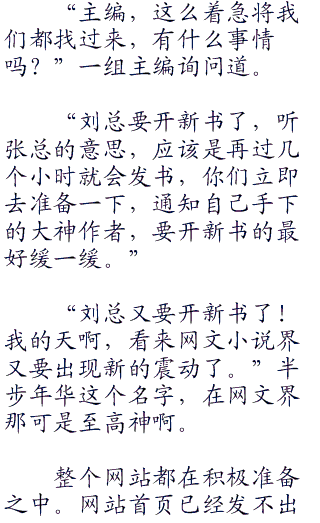 “主编，这么着急将我
们都找过来，有什么事情
吗？”一组主编询问道。
“刘总要开新书了，听
张总的意思，应该是再过几
个小时就会发书，你们立即
去准备一下，通知自己手下
的大神作者，要开新书的最
好缓一缓。”
“刘总又要开新书了！
我的天啊，看来网文小说界
又要出现新的震动了。”半
步年华这个名字，在网文界
那可是至高神啊。
整个网站都在积极准备
之中。网站首页已经发不出